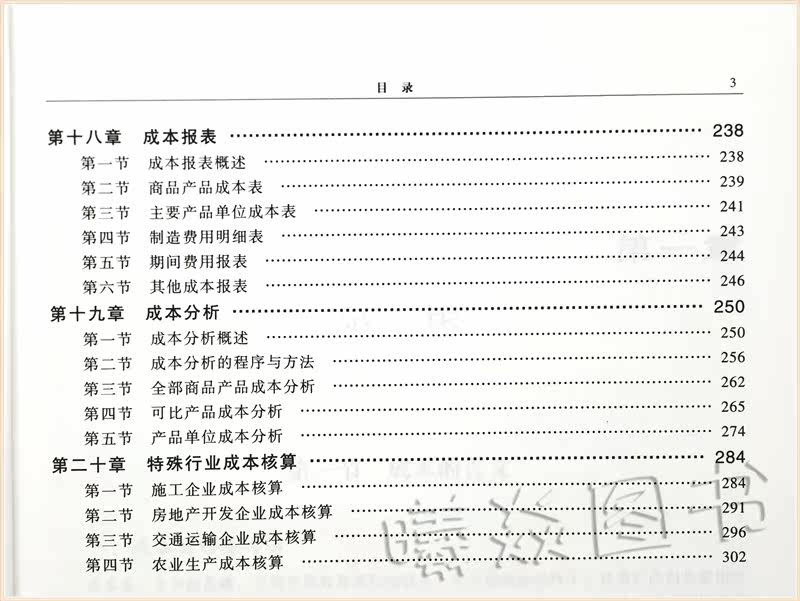 目 录 3
第十八章 成本报表 …… 238
第一节 成本报表概述 …… 238
第二节 商品产品成本表 …… 239
第三节 主要产品单位成本表 …… 241
第四节 制造费用明细表 …… 243
第五节 期间费用报表 …… 244
第六节 其他成本报表 …… 246
第十九章 成本分析 …… 250
第一节 成本分析概述 …… 250
第二节 成本分析的程序与方法 …… 256
第三节 全部商品产品成本分析 …… 262
第四节 可比产品成本分析 …… 265
第五节 产品单位成本分析 …… 274
第二十章 特殊行业成本核算 …… 284
第一节 施工企业成本核算 …… 284
第二节 房地产开发企业成本核算 …… 291
第三节 交通运输企业成本核算 …… 296
第四节 农业生产成本核算 …… 302
图书